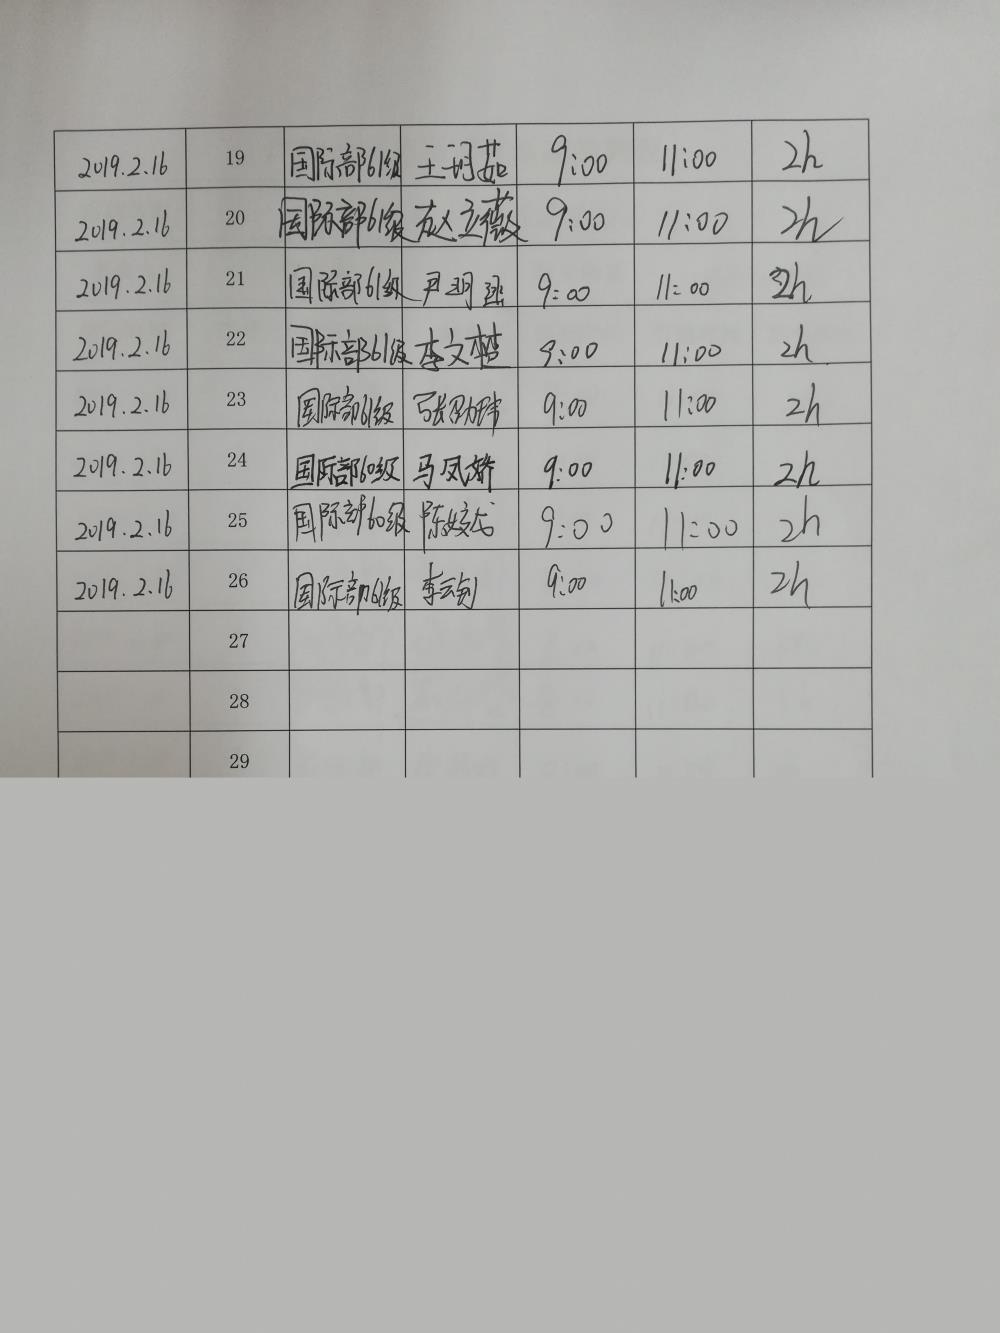 2019.2.16 19 国际部61级 王玥茹 9:00 11:00 2h
2019.2.16 20 国际部61级 赵立薇 9:00 11:00 2h
2019.2.16 21 国际部61级 尹玥 9:00 11:00 2h
2019.2.16 22 国际部61级 李文楚 9:00 11:00 2h
2019.2.16 23 国际部61级 张劭玮 9:00 11:00 2h
2019.2.16 24 国际部60级 马凤娇 9:00 11:00 2h
2019.2.16 25 国际部60级 陈姣龙 9:00 11:00 2h
2019.2.16 26 国际部61级 李云剑 9:00 11:00 2h
27
28
29